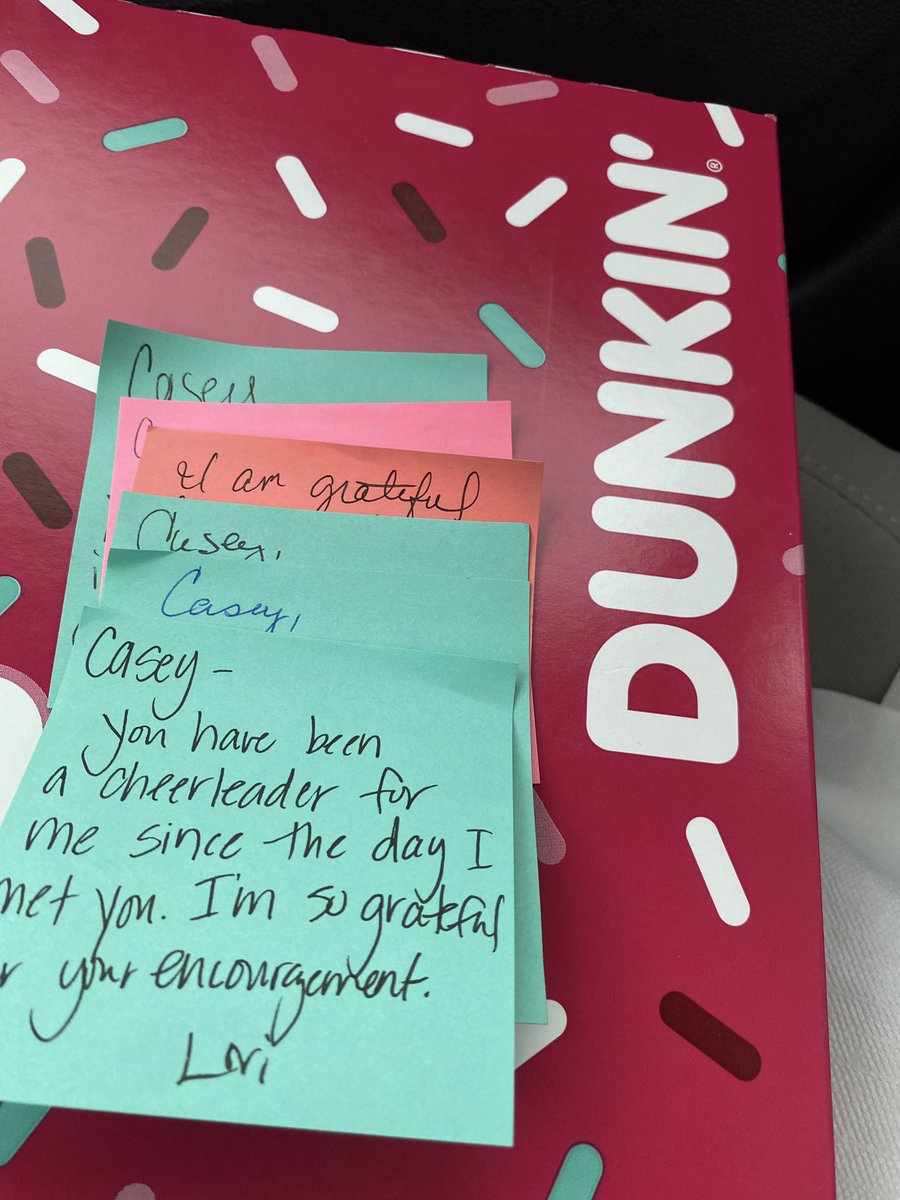 DUNKIN'®
Casey
I am grateful
Casey,
Casey,
Casey-
You have been
a cheerleader for
me since the day I
met you. I'm so grateful
your encouragement.
Lori